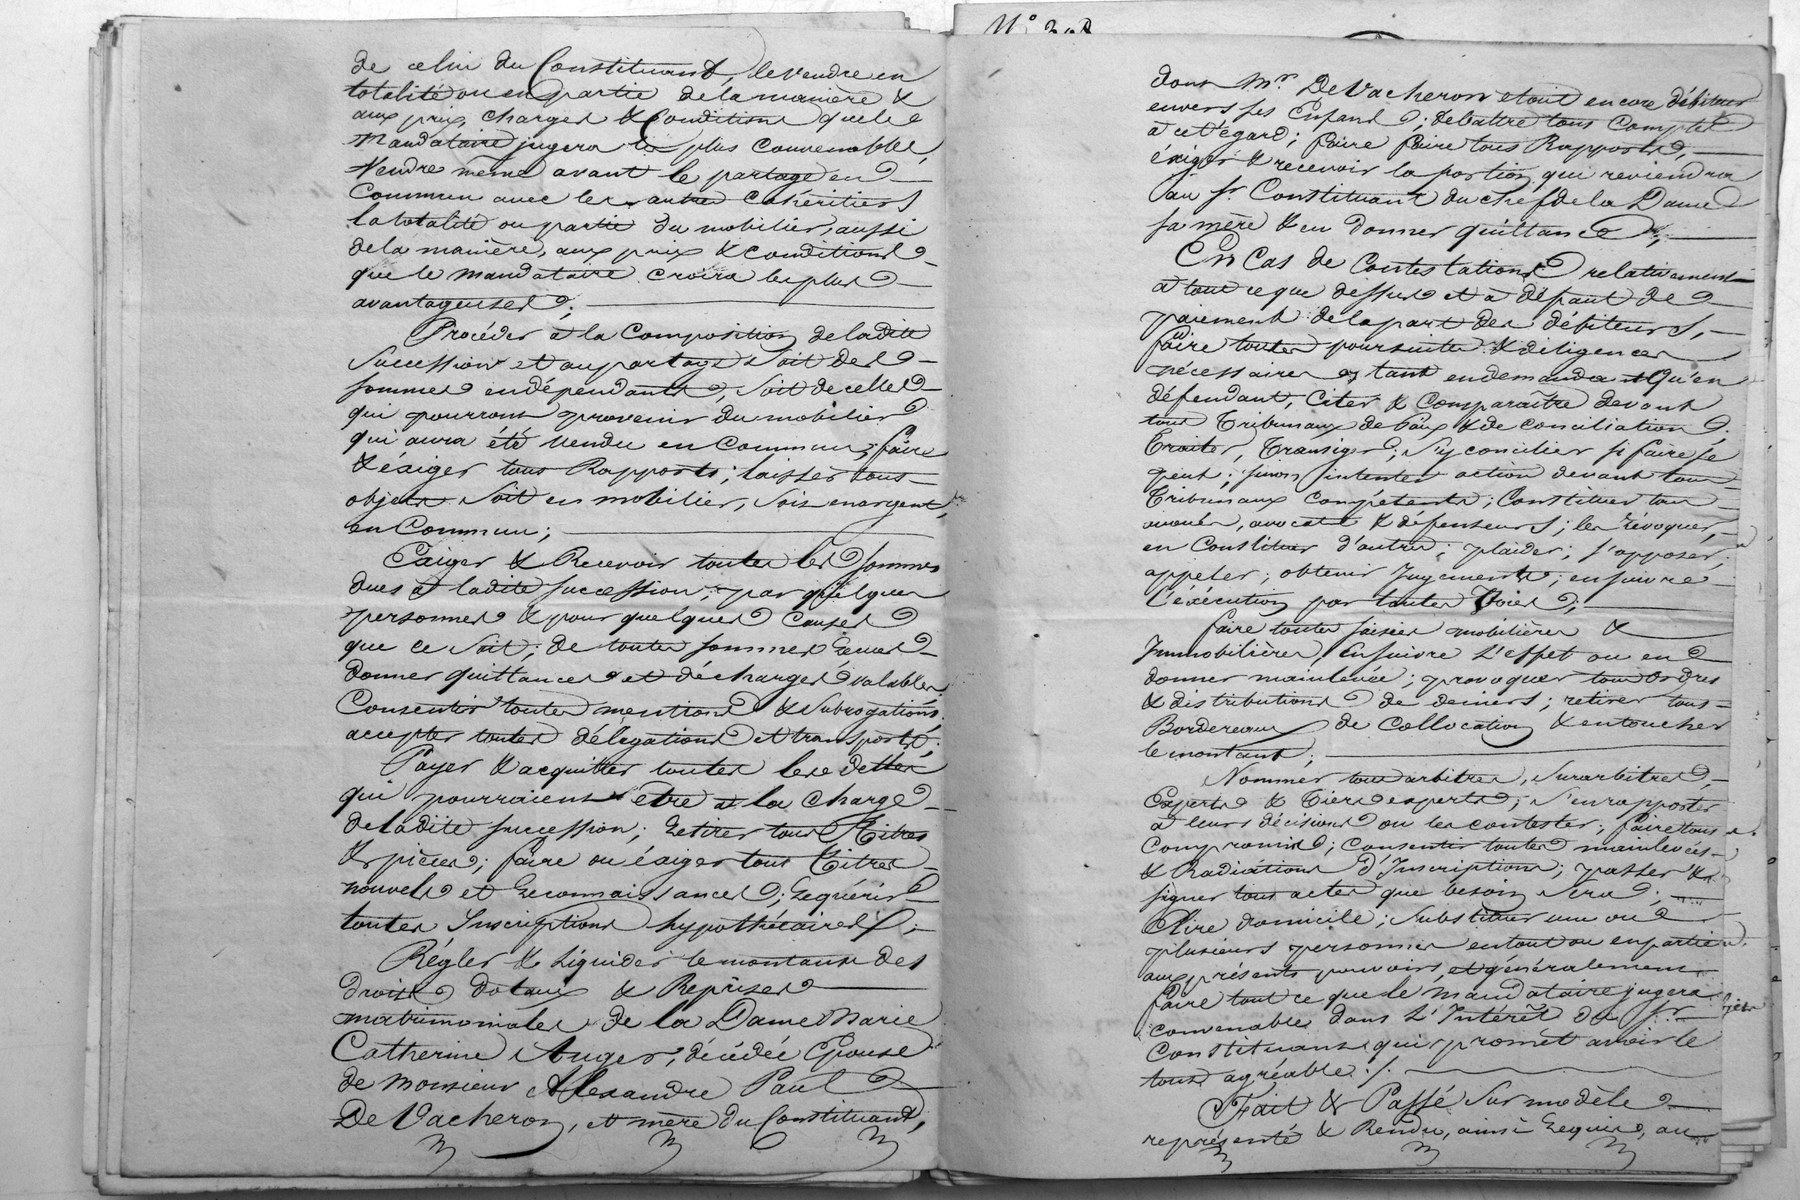 de celui du Constituant, le vendre en
totalité ou en partie de la manière &
aux prix, charges & Conditions que le
Mandataire jugera les plus convenables,
Vendre même avant le partage en
Commun avec les autres cohéritiers
la totalité ou partie du mobilier, aussi
de la manière, aux prix & conditions
que le mandataire croira les plus
avantageuses;
Procéder à la Composition de ladite
Succession et au partage soit des
sommes en dépendants, soit de celles
qui pourront provenir du mobilier
qui aura été vendu en commun; faire
& éxiger tous Rapports; laisser tous
objets soit en mobilier, soit en argent,
en Commun;
Exiger & Recevoir toutes les sommes
dues à ladite succession, par quelques
personnes & pour quelques causes
que ce soit; de toutes sommes reçues
donner quittances et décharges valables
Consentir toutes mentions & subrogations
accepter toutes délégations et transports;
Payer & acquitter toutes les dettes
qui pourraient etre à la charge
de ladite succession; retirer tous Titres
& pièces; faire ou éxiger tous Titres
nouvels et reconnaissances; requérir
toutes Inscriptions hypothécaires;
Régler & liquider le montant des
droits dotaux & Reprises
matrimoniales de la Dame Marie
Catherine Auger, décédée Epouse
de Monsieur Alexandre Paul
De Vacheron, et mère du Constituant,
N° 308
dont Mr. De Vacheron etait encore débiteur
envers ses Enfans; débattre tous Comptes
à cet égard; faire faire tous Rapports,
éxiger & recevoir la portion qui reviendra
au Sr. Constituant du chef de la Dame
sa mère & en donner quittance;
En Cas de Contestations relativement
à tout ce que dessus et à défaut de
paiement de la part des débiteurs,
faire toutes poursuites & diligences
nécessaires tant en demandant Qu'en
défendant, Citer & comparaître devant
tous Tribunaux de Paix & de conciliation;
Traiter, Transiger; s'y concilier si faire se
peut; sinon intenter action devant tous
Tribunaux compétents; Constituer tous
avoués, avocats & défenseurs; les révoquer,
en Constituer d'autres; plaider; s'opposer;
appeler; obtenir Jugements; en suivre
l'éxécution par toutes Voies;
faire toutes saisies mobilières &
Immobilières, en suivre l'effet ou en
donner mainlevée; provoquer tous Ordres
& distributions de deniers; retirer tous
Bordereaux de Collocation & en toucher
le montant;
Nommer tous arbitres, surarbitres,
Experts & Tiers experts; s'en rapporter
à leurs décisions ou les contester; faire tous
Compromis; consentir toutes mainlevées
& Radiations d'Inscriptions; passer &
signer tous actes que besoin sera;
Elire domicile; Substituer une ou
plusieurs personnes en tout ou en partie
aux présents pouvoirs, et généralement
faire tout ce que le Mandataire jugera
convenables dans l'Intérêt du Sr.
Constituant qui promet avoir le
tout agréable. /.
Fait & Passé sur modèle
représenté & Rendu, ainsi requis, au